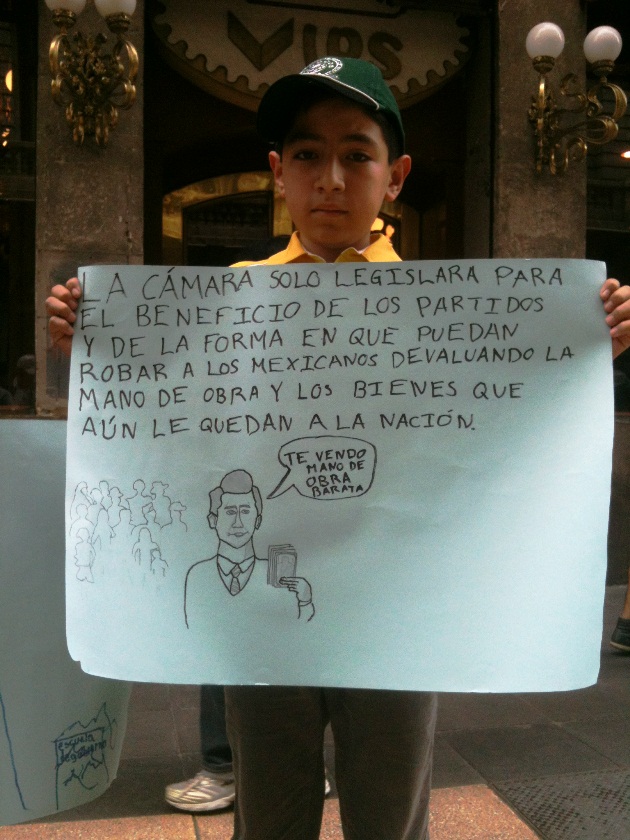 VIPS
LA CÁMARA SOLO LEGISLARA PARA
EL BENEFICIO DE LOS PARTIDOS
Y DE LA FORMA EN QUE PUEDAN
ROBAR A LOS MEXICANOS DEVALUANDO LA
MANO DE OBRA Y LOS BIENES QUE
AÚN LE QUEDAN A LA NACIÓN.
TE VENDO
MANO DE
OBRA
BARATA
escuela